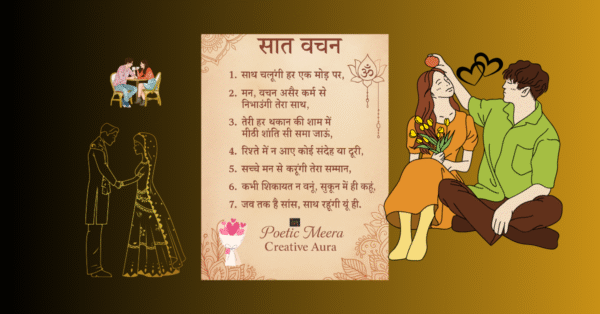 सात वचन
1. साथ चलूंगी हर एक मोड़ पर,
2. मन, वचन असैर कर्म से
निभाउंगी तेरा साथ,
3. तेरी हर थकान की शाम में
मीठी शांति सी समा जाऊं,
4. रिश्ते में न आए कोई संदेह या दूरी,
5. सच्चे मन से करूंगी तेरा सम्मान,
6. कभी शिकायत न वनूं, सुकून में ही कहूं,
7. जब तक है सांस, साथ रहूंगी यूं ही.
ॐ
Poetic Meera
Creative Aura